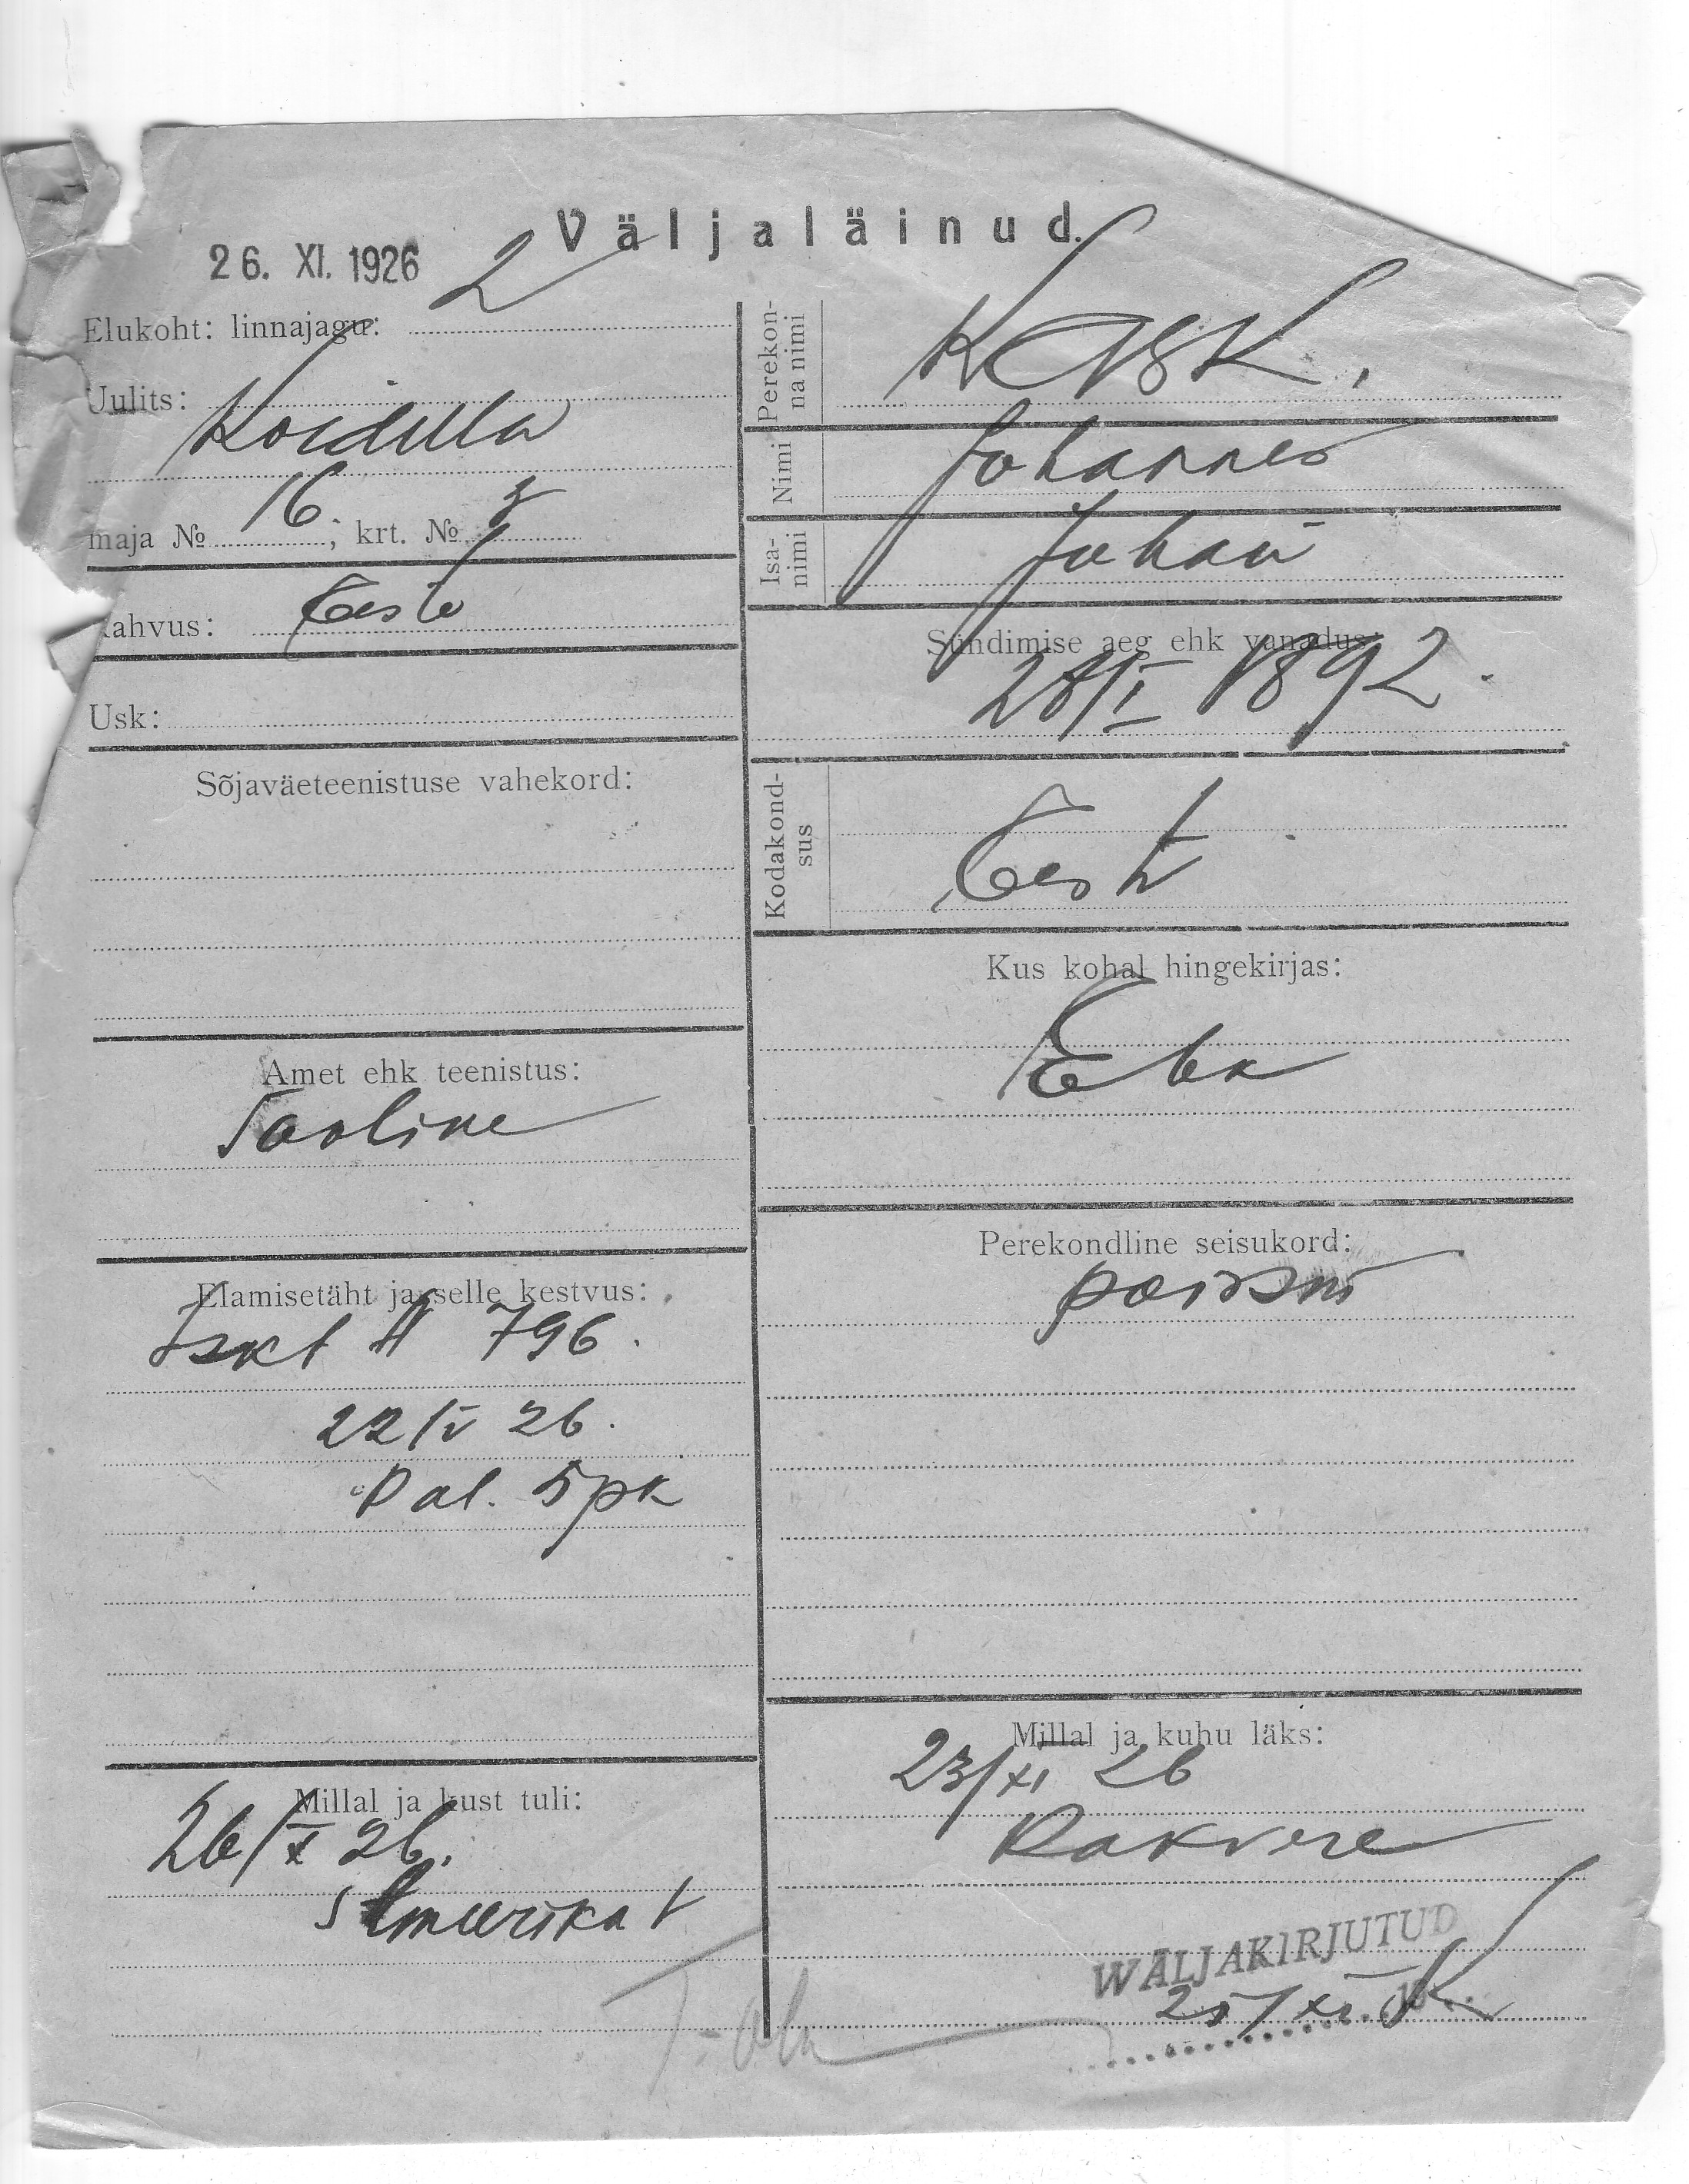 Väljaläinud.
26. XI. 1926
Elukoht: linnajagu: 2
Uulits:
Koidula
maja № 16; krt. №
ahvus: Eesti
Usk:
Sõjaväeteenistuse vahekord:
Amet ehk teenistus:
Tööline
Elamisetäht ja selle kestvus:
Iskt A 796.
22/V 26.
Pal. 5 pk
Millal ja kust tuli:
26/X 26.
Ameerikat
Perekon-
na nimi
Kask,
Nimi
Johannes
Isa-
nimi
Johan
Sündimise aeg ehk vanadus:
28/I 1892.
Kodakond-
sus
Eesti
Kus kohal hingekirjas:
Perekondline seisukord:
poissm
Millal ja kuhu läks:
23/XI 26
Rakvere
WÄLJAKIRJUTUD
25/XI